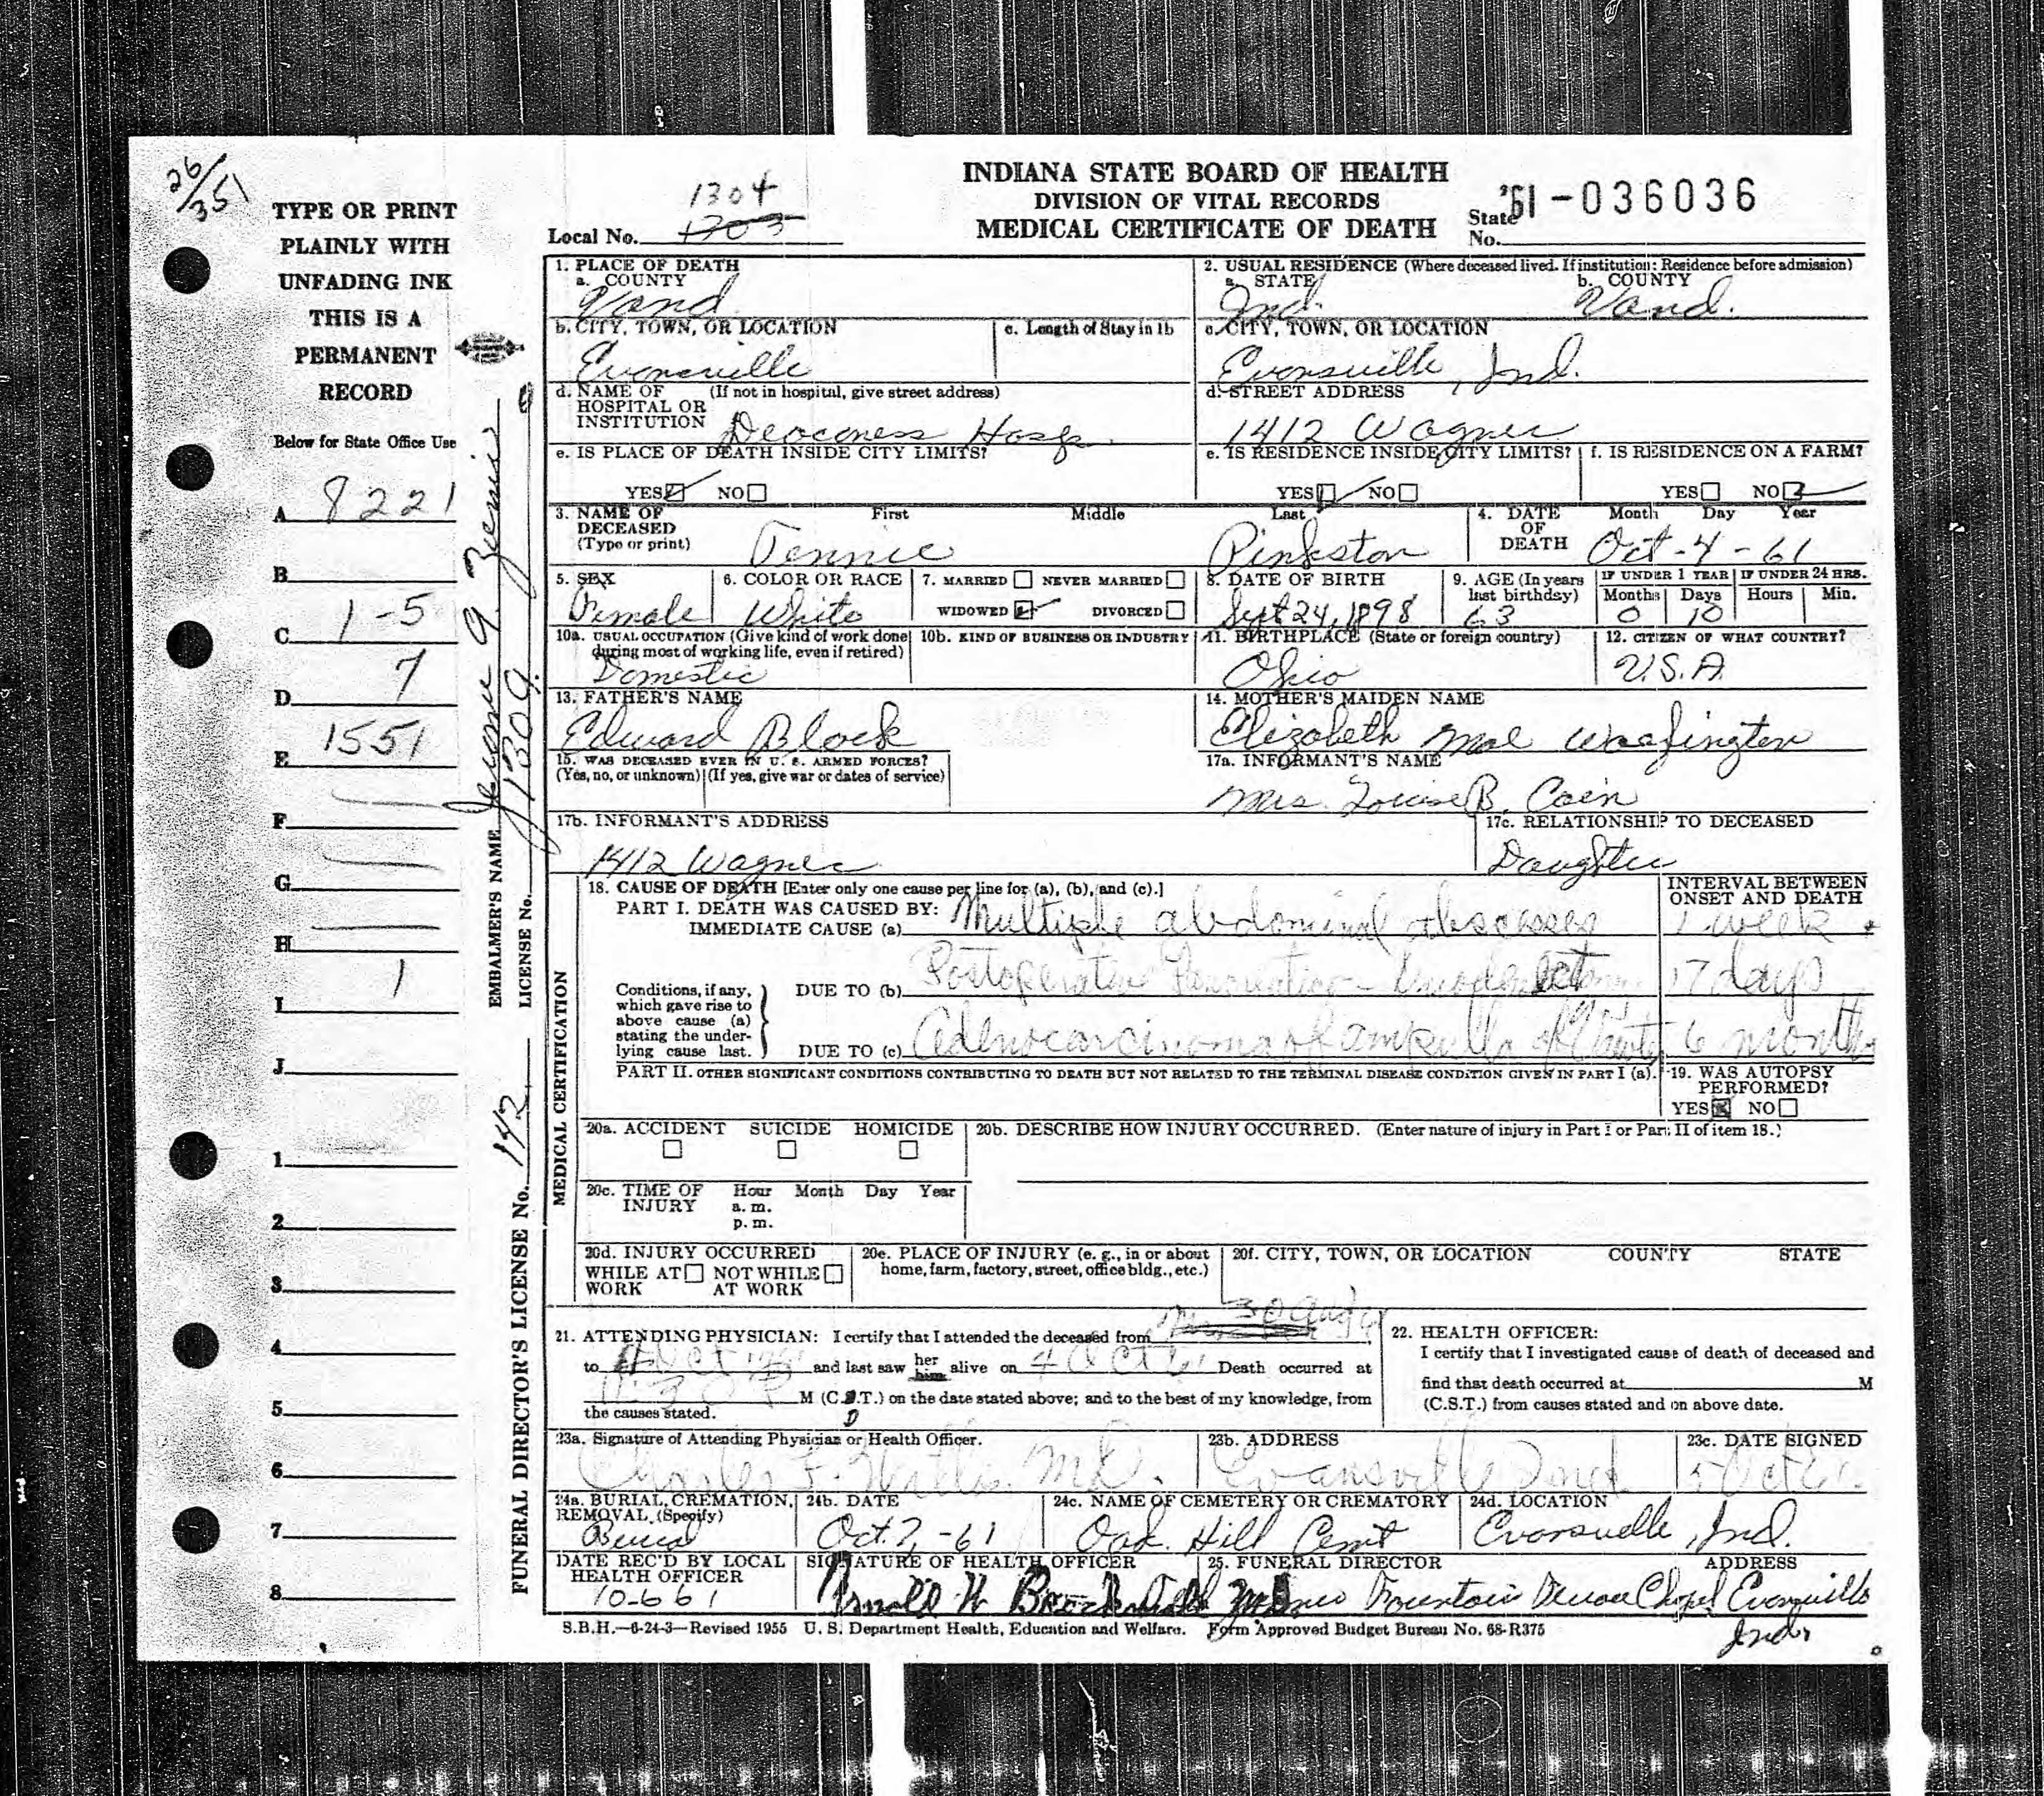 26/351
TYPE OR PRINT
PLAINLY WITH
UNFADING INK
THIS IS A
PERMANENT
RECORD
Below for State Office Use
A 8221
B
C 1-5
D 7
E 1551
F —
G —
H —
I 1
J
1
2
3
4
5
6
7
8
EMBALMER'S NAME Jerome A. LICENSE No. 1309
FUNERAL DIRECTOR'S LICENSE No. 142
INDIANA STATE BOARD OF HEALTH
DIVISION OF VITAL RECORDS
MEDICAL CERTIFICATE OF DEATH
Local No. 1303 1304
State No. '61-036036
1. PLACE OF DEATH
a. COUNTY
Vand
2. USUAL RESIDENCE (Where deceased lived. If institution: Residence before admission)
a. STATE b. COUNTY
Ind. Vand.
b. CITY, TOWN, OR LOCATION c. Length of Stay in 1b
Evansville
c. CITY, TOWN, OR LOCATION
Evansville, Ind.
d. NAME OF (If not in hospital, give street address)
HOSPITAL OR
INSTITUTION Deaconess Hosp.
d. STREET ADDRESS
1412 Wagner
e. IS PLACE OF DEATH INSIDE CITY LIMITS?
YES NO
e. IS RESIDENCE INSIDE CITY LIMITS? f. IS RESIDENCE ON A FARM?
YES NO YES NO
3. NAME OF DECEASED (Type or print) First Middle Last
Tennie Pinkston
4. DATE OF DEATH Month Day Year
Oct-4-61
5. SEX
Female
6. COLOR OR RACE
White
7. MARRIED NEVER MARRIED
WIDOWED DIVORCED
8. DATE OF BIRTH
Sept 24, 1898
9. AGE (In years last birthday)
63
IF UNDER 1 YEAR IF UNDER 24 HRS.
Months Days Hours Min.
0 10
10a. USUAL OCCUPATION (Give kind of work done during most of working life, even if retired)
Domestic
10b. KIND OF BUSINESS OR INDUSTRY
11. BIRTHPLACE (State or foreign country)
Ohio
12. CITIZEN OF WHAT COUNTRY?
U.S.A.
13. FATHER'S NAME
Edward Block
14. MOTHER'S MAIDEN NAME
Elizabeth Mae
15. WAS DECEASED EVER IN U. S. ARMED FORCES?
(Yes, no, or unknown) (If yes, give war or dates of service)
17a. INFORMANT'S NAME
Mrs. Louise B. Cain
17b. INFORMANT'S ADDRESS
1412 Wagner
17c. RELATIONSHIP TO DECEASED
Daughter
MEDICAL CERTIFICATION
18. CAUSE OF DEATH [Enter only one cause per line for (a), (b), and (c).]
INTERVAL BETWEEN ONSET AND DEATH
PART I. DEATH WAS CAUSED BY:
IMMEDIATE CAUSE (a) Multiple abdominal abscesses 1 week +
Conditions, if any, which gave rise to above cause (a) stating the underlying cause last.
DUE TO (b) Postoperative 17 days
DUE TO (c) Adenocarcinoma of ampulla of 6 months
PART II. OTHER SIGNIFICANT CONDITIONS CONTRIBUTING TO DEATH BUT NOT RELATED TO THE TERMINAL DISEASE CONDITION GIVEN IN PART I (a).
19. WAS AUTOPSY PERFORMED?
YES NO
20a. ACCIDENT SUICIDE HOMICIDE
20b. DESCRIBE HOW INJURY OCCURRED. (Enter nature of injury in Part I or Part II of item 18.)
20c. TIME OF INJURY Hour Month Day Year
a. m.
p. m.
20d. INJURY OCCURRED
WHILE AT WORK NOT WHILE AT WORK
20e. PLACE OF INJURY (e. g., in or about home, farm, factory, street, office bldg., etc.)
20f. CITY, TOWN, OR LOCATION COUNTY STATE
21. ATTENDING PHYSICIAN: I certify that I attended the deceased from 30 Aug 61
to 4 Oct 1961 and last saw her him alive on 4 Oct 61 Death occurred at
11:30 P M (C.S.T.) on the date stated above; and to the best of my knowledge, from
the causes stated. D
22. HEALTH OFFICER:
I certify that I investigated cause of death of deceased and
find that death occurred at M
(C.S.T.) from causes stated and on above date.
23a. Signature of Attending Physician or Health Officer.
Charles F. M.D.
23b. ADDRESS
Evansville Ind
23c. DATE SIGNED
5 Oct 61
24a. BURIAL, CREMATION, REMOVAL, (Specify)
Burial
24b. DATE
Oct. 7, -61
24c. NAME OF CEMETERY OR CREMATORY
Oak Hill Cemt
24d. LOCATION
Evansville, Ind.
DATE REC'D BY LOCAL HEALTH OFFICER
10-6 61
SIGNATURE OF HEALTH OFFICER
Arnold W
25. FUNERAL DIRECTOR ADDRESS
Chapel Evansville
Ind.
S.B.H.—6-24-3—Revised 1955 U. S. Department Health, Education and Welfare. Form Approved Budget Bureau No. 68-R375